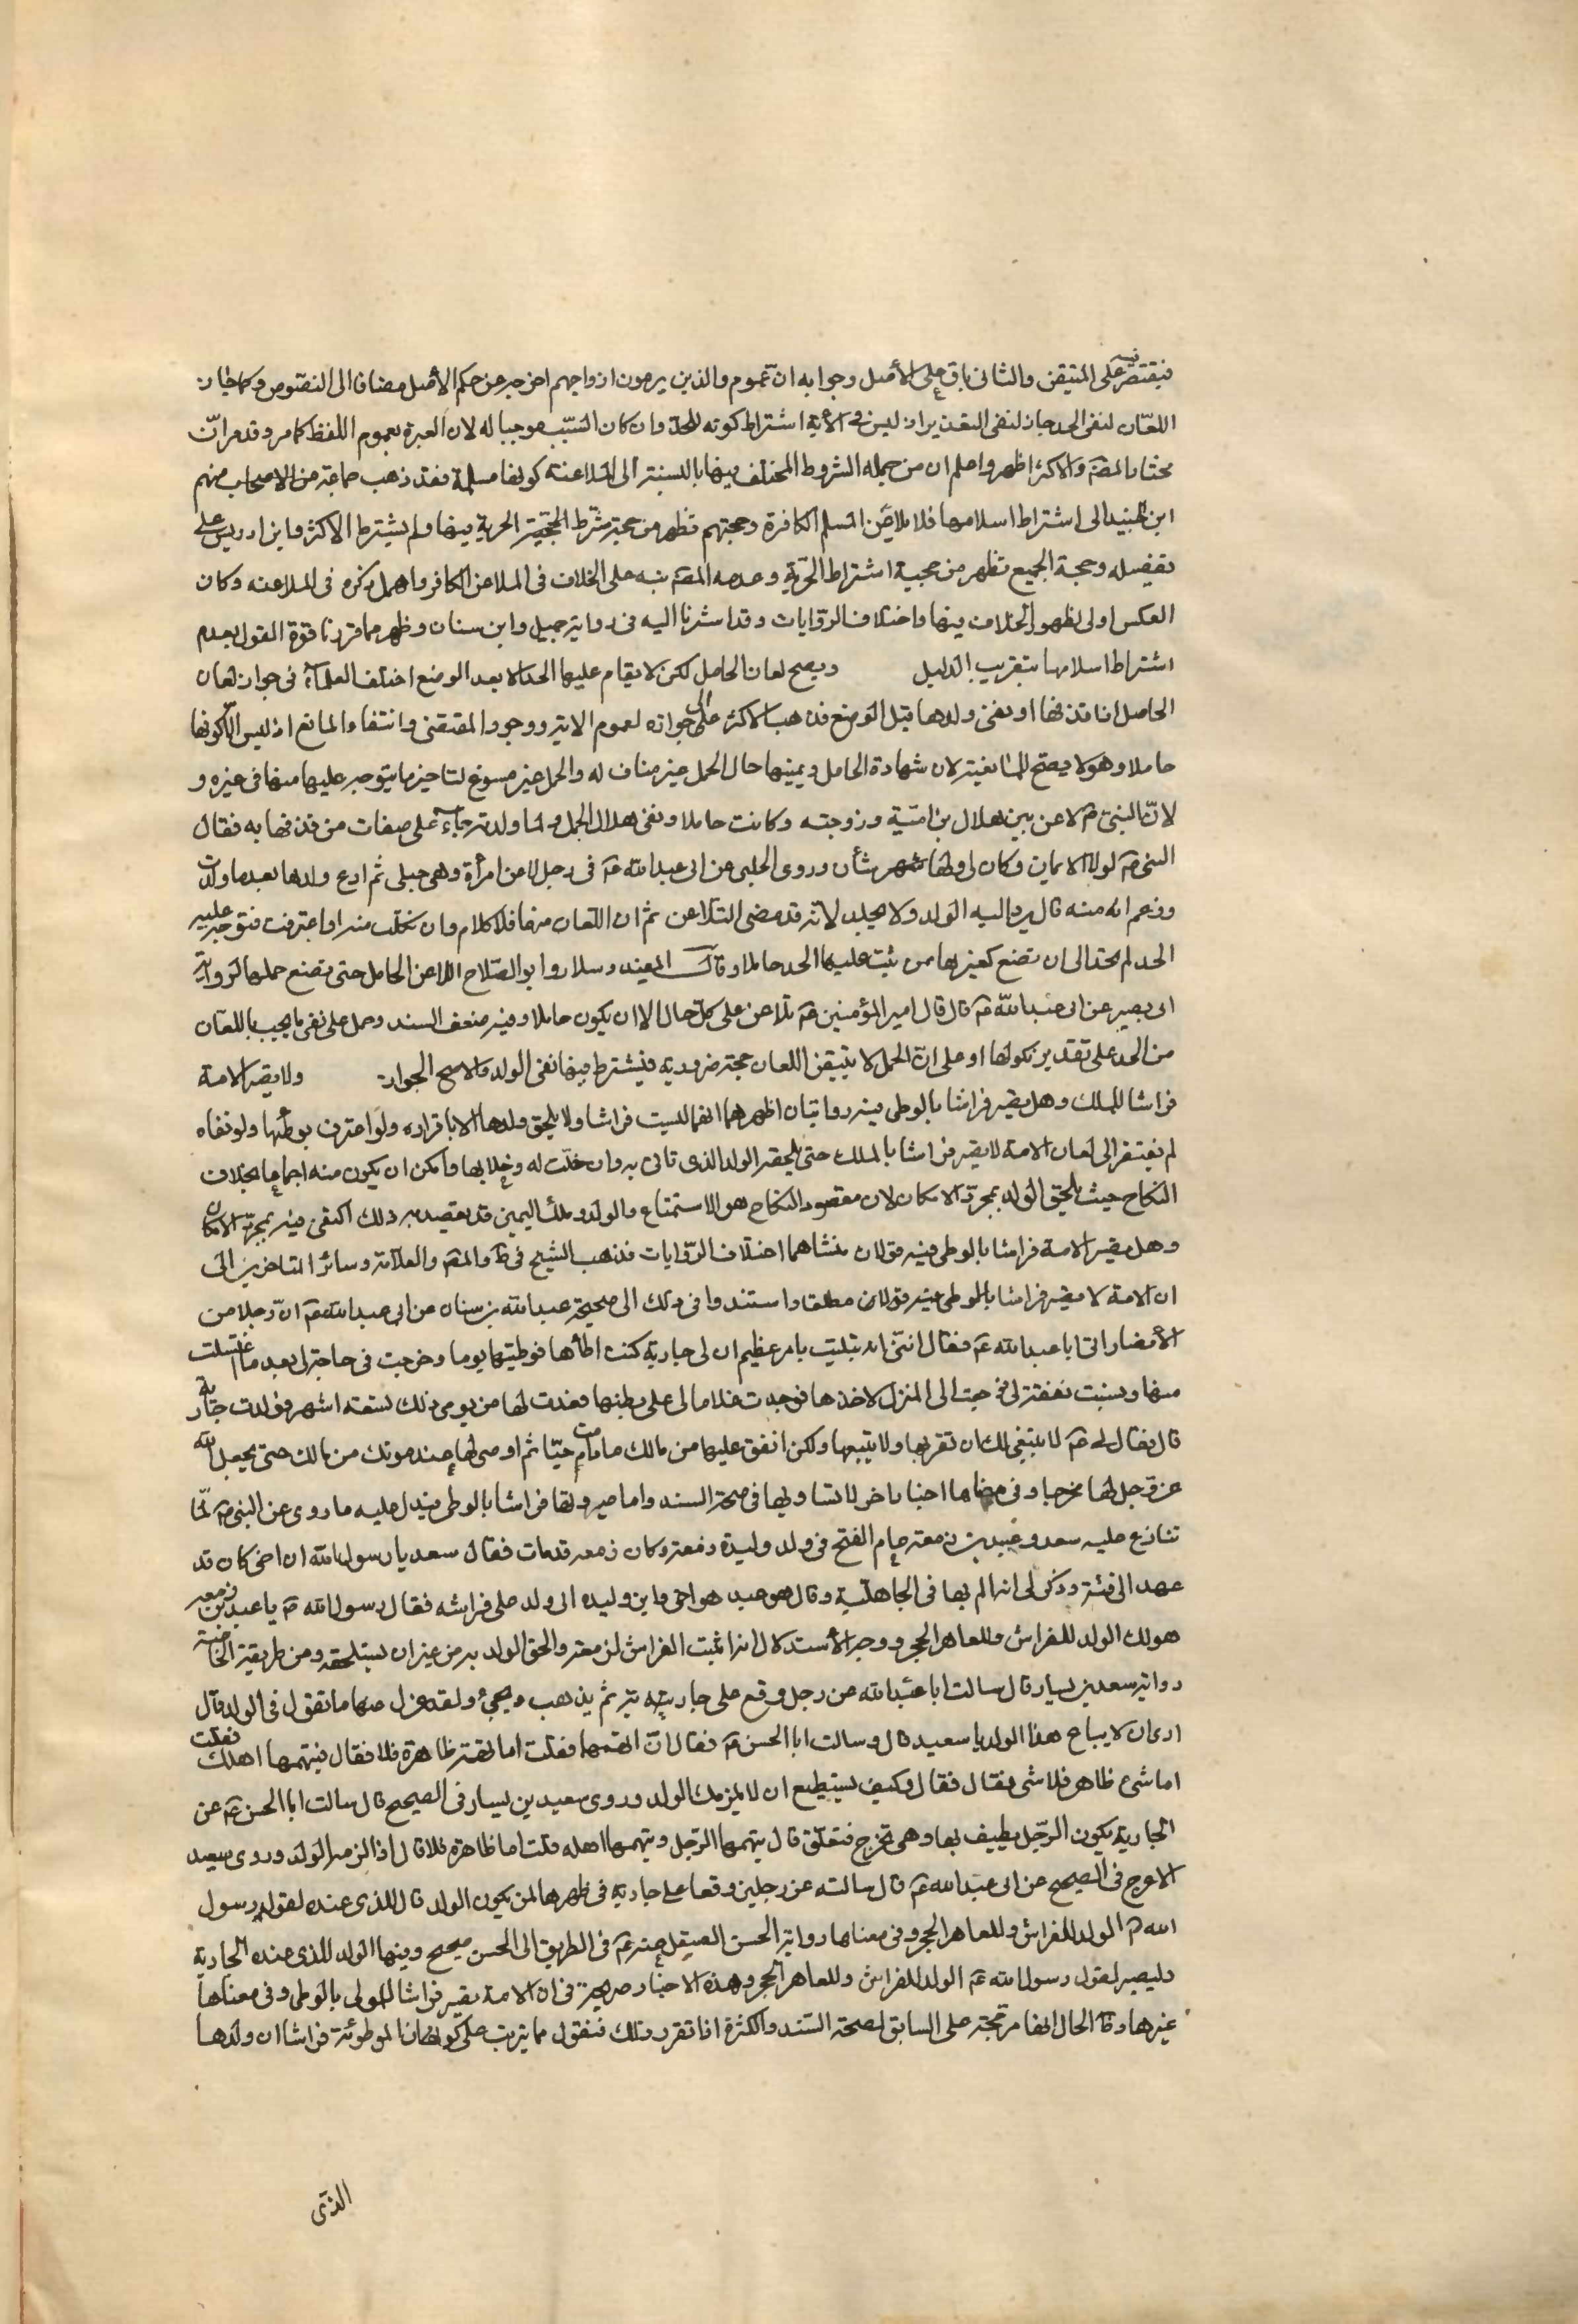 فيقتصر فيه على المتيقن والثانى باق على الأصل وجوابه ان عموم والذين يرمون ازواجهم اخرجه عن حكم الأصل مضافا الى النصوص وكما جاز
اللعان لنفى الحد جاز لنفى التعذير اذ ليس فى الآية اشتراط كونه للحد وان كان السبب موجبا له لان العبرة بعموم اللفظ كما مر وقد مر ان
مختار المصَ والاكثر اظهر واعلم ان من جمله الشروط المختلف فيها بالنسبة الى الملاعنة كونها مسلمة فقد ذهب جماعة من الاصحاب منهم
ابن الجنيد الى اشتراط اسلامها فلا يلاعن المسلم الكافرة وحجتهم تظهر من حجة مشترط الحرية فيها ولم يشترط الاكثر وابن ادريس على
تفصيله وحجة الجميع تظهر من حجية اشتراط الحرية وعدمه المصَ نبه على الخلاف فى الملاعن الكافر واهمل ذكره فى الملاعنه وكان
العكس اولى لظهور الخلاف فيها واختلاف الروايات وقد اشرنا اليه فى رواية جميل وابن سنان وظهر مما قررنا قوة القول بعدم
اشتراط اسلامها بتقريب الدليل ويصح لعان الحامل لكن لا يقام عليها الحد الا بعد الوضع اختلف العلمآء فى جواز لعان
الحامل اذا قذفها او نفى ولدها قبل الوضع فذهب الاكثر الى جوازه لعموم الاية ووجود المقتضى وانتفاء المانع اذ ليس الا كونها
حاملا وهو لا يصلح للمانعية لان شهادة الحامل ويمينها حال الحمل غير مناف له والحمل غير مسوغ لتاخير ما يتوجه عليها منها فى غيره و
لان النبى صَ لاعن بين هلال بن امية وزوجته وكانت حاملا ونفى هلال الحمل ولما ولدته جاءت به على صفات من قذفها به فقال
النبى صَ لولا الايمان لكان لى ولها شأن وروى الحلبى عن ابى عبد الله عَ فى رجل لاعن امرأة وهى حبلى ثم ادع ولدها بعد ما ولدت
وزعم انه منه قال يرد اليه الولد ولا يجلد لانه قد مضى التلاعن ثم ان اللعان منها فلا كلام وان نكلت منه او اعترفت فتوجه عليه
الحد لم تحد الى ان تضع كغيرها ممن ثبت عليها الحد حاملا وقال المفيد وسلار وابو الصلاح الا لاعن الحامل حتى تضع حملها لرواية
ابى بصير عن ابى عبد الله عَ قال قال امير المؤمنين عَ تلاعن على كل حال الا ان يكون حاملا وفيه ضعف السند وحمل على نفى ما يجب باللعان
من الحد على تقدير نكولها او على ان الحمل لا يتيقن اللعان حجة ضرورية فيشترط فيها نفى الولد والاصح الجواز ولا يصير الامة
فراشا للملك وهل يصير فراشا بالوطى فيه روايتان اظهرهما انها ليست فراشا ولا يلحق ولدها الا باقراره ولو اعترف بوطئها ولو نفاه
لم يفتقر الى لعان الامة لا يصير فراشا بالملك حتى يلحقه الولد الذى تاتى به وان خلت له وخلا بها وامكن ان يكون منه اجماعا بخلاف
النكاح حيث يلحق الولد بمجرد الامكان لان مقصود النكاح هو الاستمتاع والولد وملك اليمين قد يقصد به ذلك اكتفى فيه بمجرد الامكان
وهل يصير الامة فراشا بالوطى فيه قولان منشاهما اختلاف الروايات فذهب الشيخ فى طَ والمصَ والعلامة وسائر المتاخرين الى
ان الامة لا يصير فراشا بالوطى فيه قولان مطلقا واستندوا فى ذلك الى صحيحة عبد الله بن سنان عن ابى عبد الله عَ ان رجلا من
الأنصار اتى ابا عبد الله عَ فقال انى ابتليت بامر عظيم ان لى جارية كنت اطأها فوطيتها يوما وخرجت فى حاجة لى بعد ما اغتسلت
منها ونسيت نفقة لى فرجعت الى المنزل لاخذها فوجدت غلاما لى على بطنها فعددت لها من يومى ذلك تسعة اشهر فولدت جارية
قال فقال لى عَ لا ينبغى لك ان تقربها ولا تبيعها ولكن انفق عليها من مالك ما دمت حيا ثم اوصى لها عند موتك من مالك حتى يجعل الله
عز وجل لها مخرجا وفى معناها اخبار اخر لا تساويها فى صحة السند واما صيرورتها فراشا بالوطى فيدل عليه ما روى عن النبى صَ لما
تنازع عليه سعد وعبد بن زمعة عام الفتح فى ولد وليدة زمعة وكان زمعه قد مات فقال سعد يا رسول الله ان اخى كان قد
عهد الى فيه وذكر لى انه الم بها فى الجاهلية وقال هو عبد هو اخى وابن وليده ابى ولد على فراشه فقال رسول الله صَ يا عبد بن زمعه
هو لك الولد للفراش وللعاهر الحجر ووجه الأستدلال انه اثبت الفراش لزمعه والحق الولد به من غير ان يستلحقه ومن طريقة الخاصة
رواية سعيد بن يسار قال سالت ابا عبد الله عن رجل وقع على جارية له ثم يذهب ويجئ ولقد عزل عنها ما تقول فى الولد قال
ارى ان لا يباع هذا الولد يا سعيد قال وسالت ابا الحسن عَ فقال ان اتهمها فقلت اما تهمة ظاهرة فلا فقال فيتهمها اهلك فقلت
اما شئ ظاهر فلا شى فقال فقال وكيف يستطيع ان لا يلزمك الولد وروى سعيد بن يسار فى الصحيح قال سالت ابا الحسن عَ عن
الجارية يكون الرجل يطيف بها وهى تخرج فتعلق قال يتهمها الرجل ويتهمها اهله قلت اما ظاهرة فلا قال اذا لزمه الولد وروى سعيد
الاعرج فى الصحيح عن ابى عبد الله عَ قال سالته عن رجلين وقعا على جارية فى طهرها لمن يكون الولد قال للذى عنده لقول رسول
الله صَ الولد للفراش وللعاهر الحجر وفى معناها رواية الحسن الصيقل عنه عَ فى الطريق الى الحسن صحيح وفيها الولد للذى عنده الجارية
وليصبر لقول رسول الله صَ الولد للفراش وللعاهر الحجر وهذه الاخبار صريحة فى ان الامة يصير فراشا للمولى بالوطى وفى معناها
غيرها وقا الحال انها مرجحة على السابق لصحة السند والكثرة اذا تقرر ذلك فنقول مما يترتب على كونها الموطوئة فراشا ان ولدها
الذى